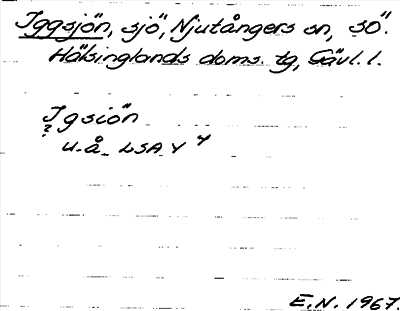 Iggsjön, sjö, Njutångers sn, SÖ.
Hälsinglands doms. tg, Gävl. l.
Igsiön
?
u. å. LSA Y 4
E.N. 1967.